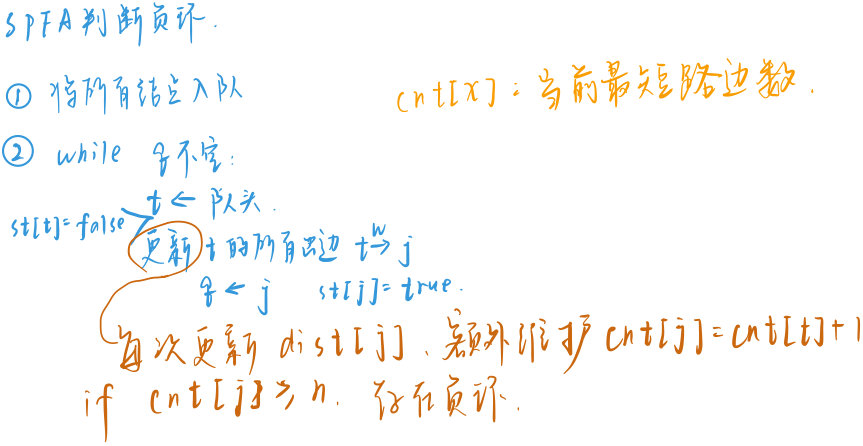 SPFA判断负环.
① 将所有结点入队
cnt[x]: 当前最短路边数.
② while q不空:
t ← 队头.
st[t]=false
更新 t的所有出边 t →w j
q ← j st[j]=true.
每次更新 dist[j], 额外维护 cnt[j]=cnt[t]+1
if cnt[j]≥n. 存在负环.